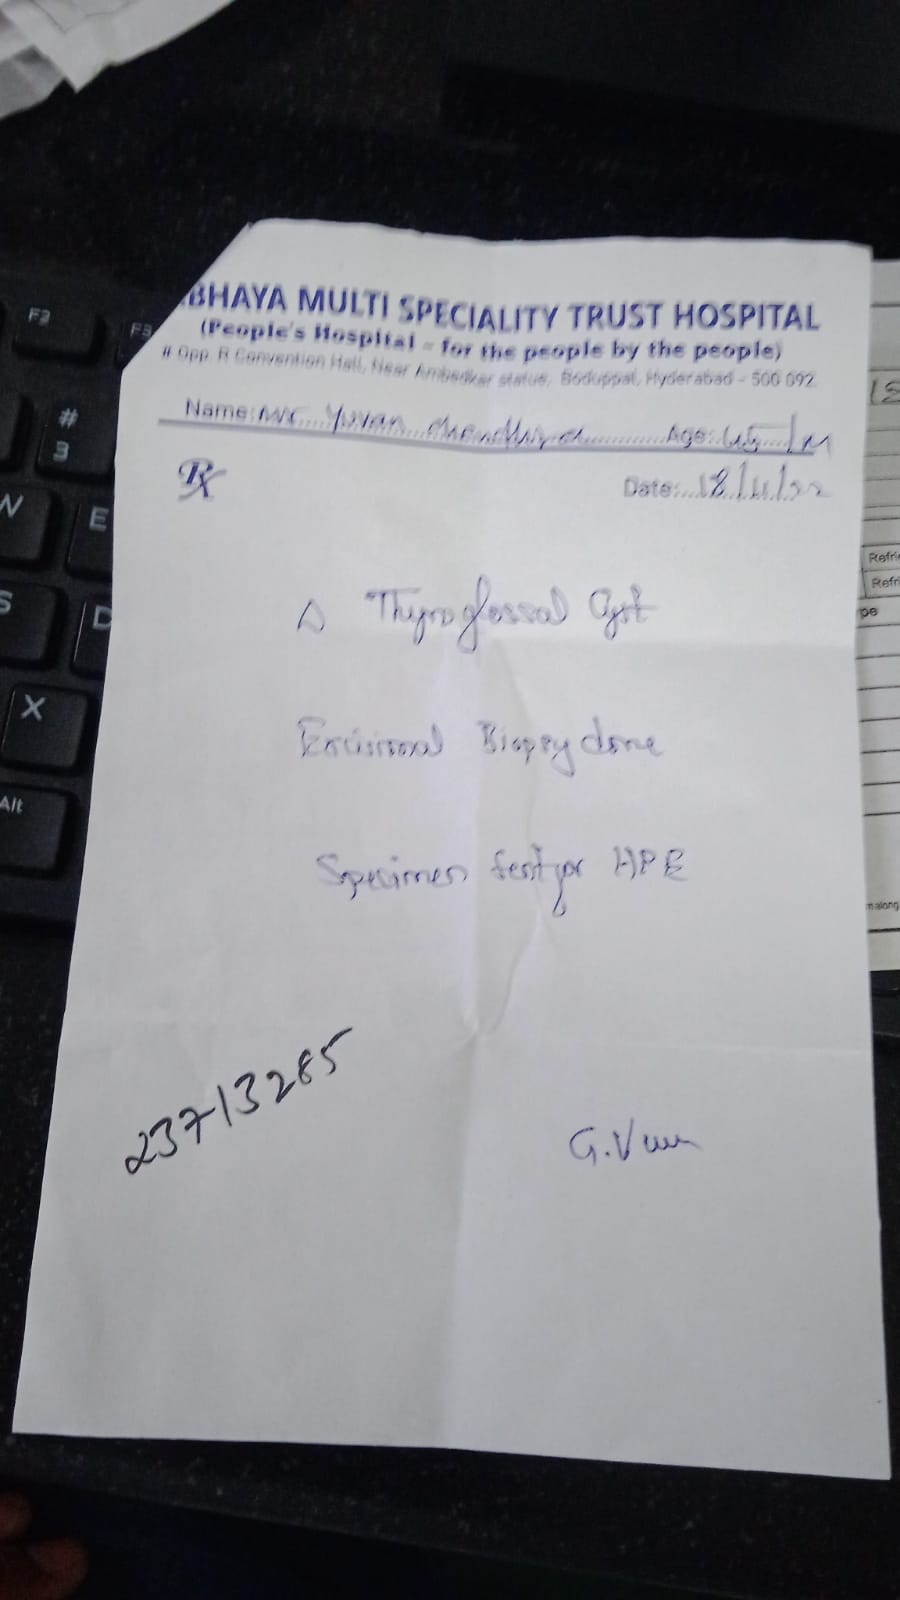 BHAYA MULTI SPECIALITY TRUST HOSPITAL
(People's Hospital - for the people by the people)
# Opp. R Convention Hall, Near Ambedkar status, Boduppal, Hyderabad - 500 092
Name: Mr. Yuvan Age: 45/M
Rx
Date: 18/11/22
Δ Thyroglossal Cyst
Excisional Biopsy done
Specimen sent for HPE
23713285
G.V
F2
F3
#
3
W
E
S
D
X
Alt
Refri
Refri
pe